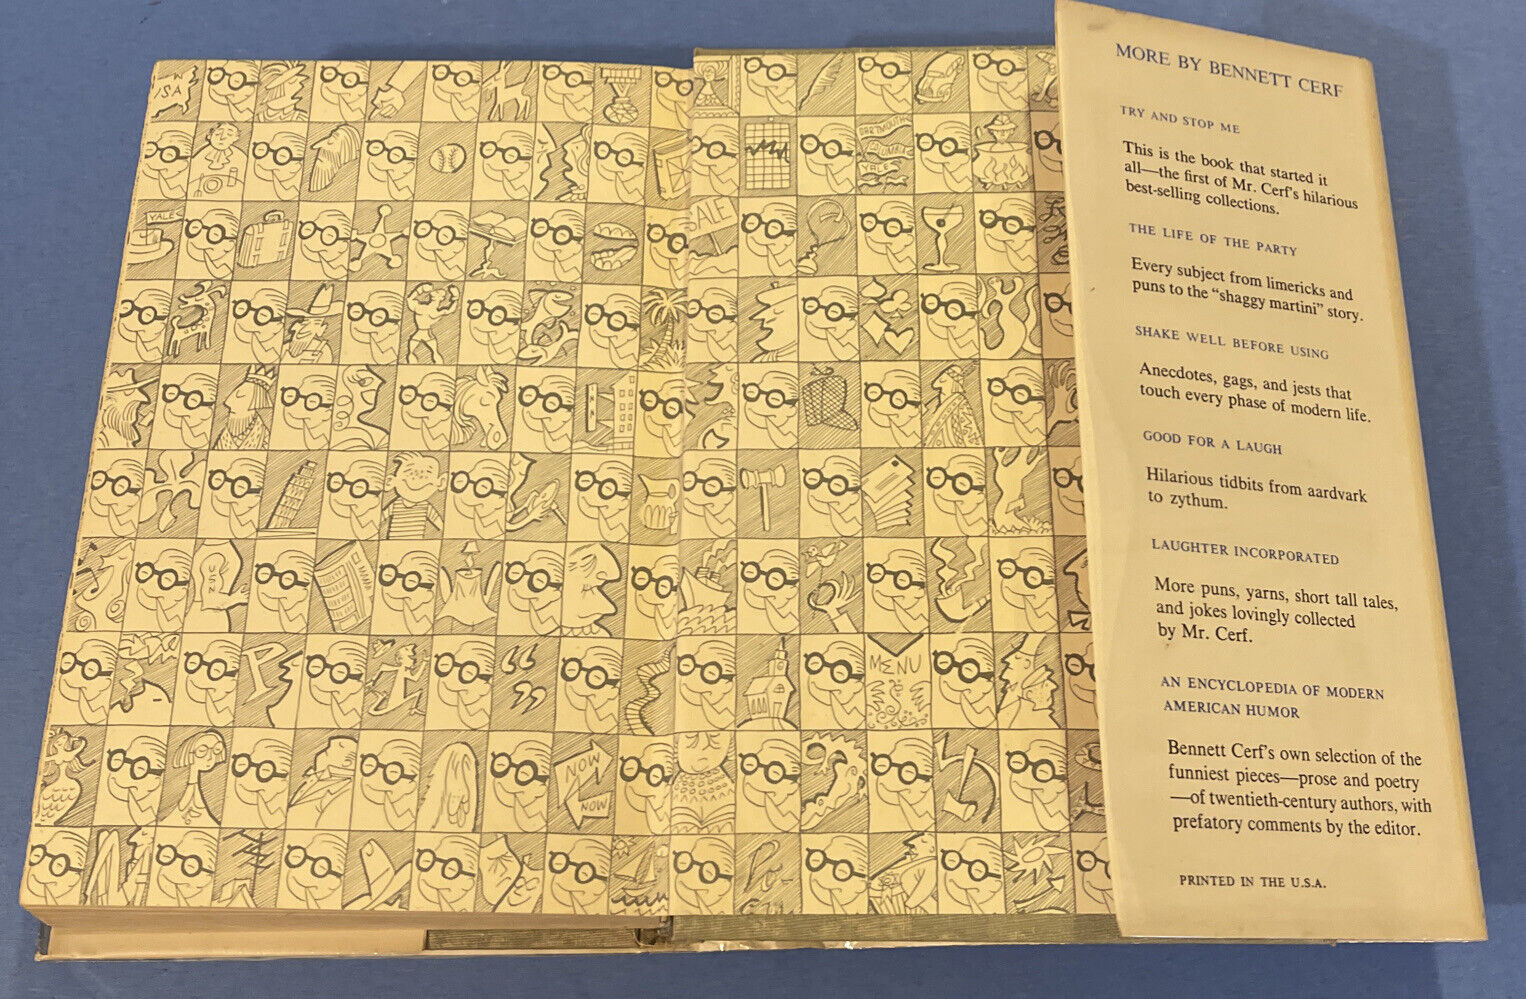 USA
YALE
USN
P
NOW
NOW
DARTMOUTH
YALE
YALE
MENU
MORE BY BENNETT CERF
TRY AND STOP ME
This is the book that started it
all—the first of Mr. Cerf's hilarious
best-selling collections.
THE LIFE OF THE PARTY
Every subject from limericks and
puns to the “shaggy martini” story.
SHAKE WELL BEFORE USING
Anecdotes, gags, and jests that
touch every phase of modern life.
GOOD FOR A LAUGH
Hilarious tidbits from aardvark
to zythum.
LAUGHTER INCORPORATED
More puns, yarns, short tall tales,
and jokes lovingly collected
by Mr. Cerf.
AN ENCYCLOPEDIA OF MODERN
AMERICAN HUMOR
Bennett Cerf's own selection of the
funniest pieces—prose and poetry
—of twentieth-century authors, with
prefatory comments by the editor.
PRINTED IN THE U.S.A.